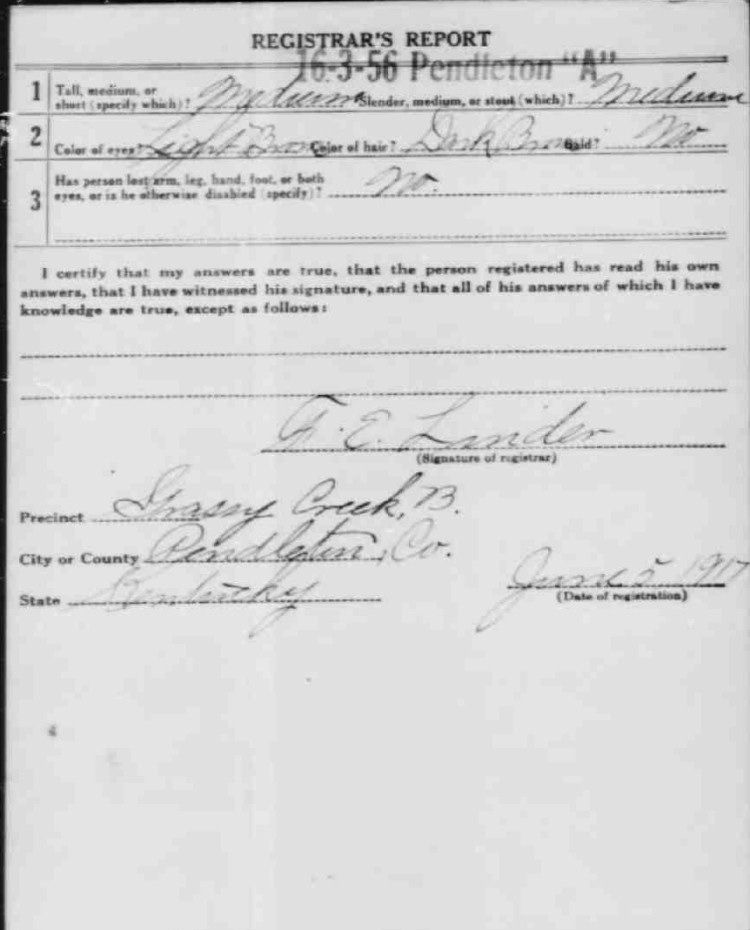 REGISTRAR'S REPORT
16-3-56 Pendleton "A"
1 Tall, medium, or short (specify which)? Medium Slender, medium, or stout (which)? Medium
2 Color of eyes? Light Brown Color of hair? Dark Brown Bald? No
3 Has person lost arm, leg, hand, foot, or both
eyes, or is he otherwise disabled (specify)? No.
I certify that my answers are true, that the person registered has read his own
answers, that I have witnessed his signature, and that all of his answers of which I have
knowledge are true, except as follows:
F. E. Linder
(Signature of registrar)
Precinct Grassy Creek, B.
City or County Pendleton, Co.
State Kentucky
June 5 1917
(Date of registration)